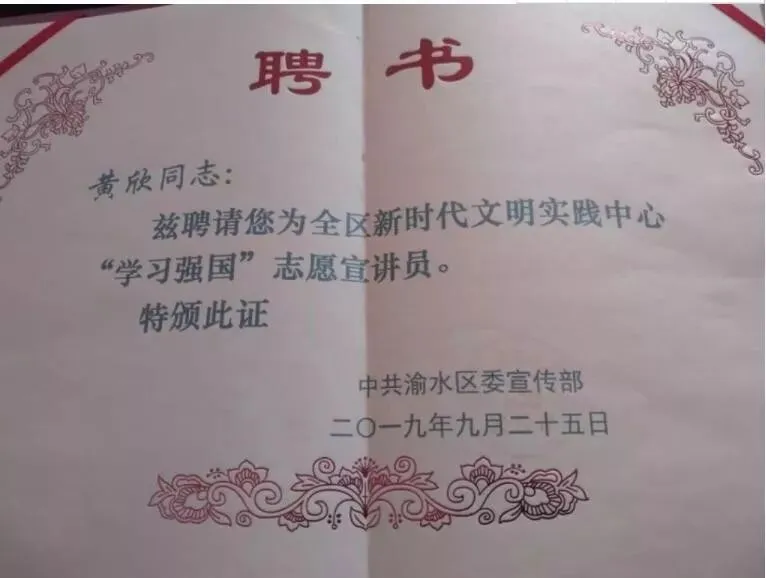 聘书
黄欣同志：
兹聘请您为全区新时代文明实践中心
“学习强国”志愿宣讲员。
特颁此证
中共渝水区委宣传部
二〇一九年九月二十五日